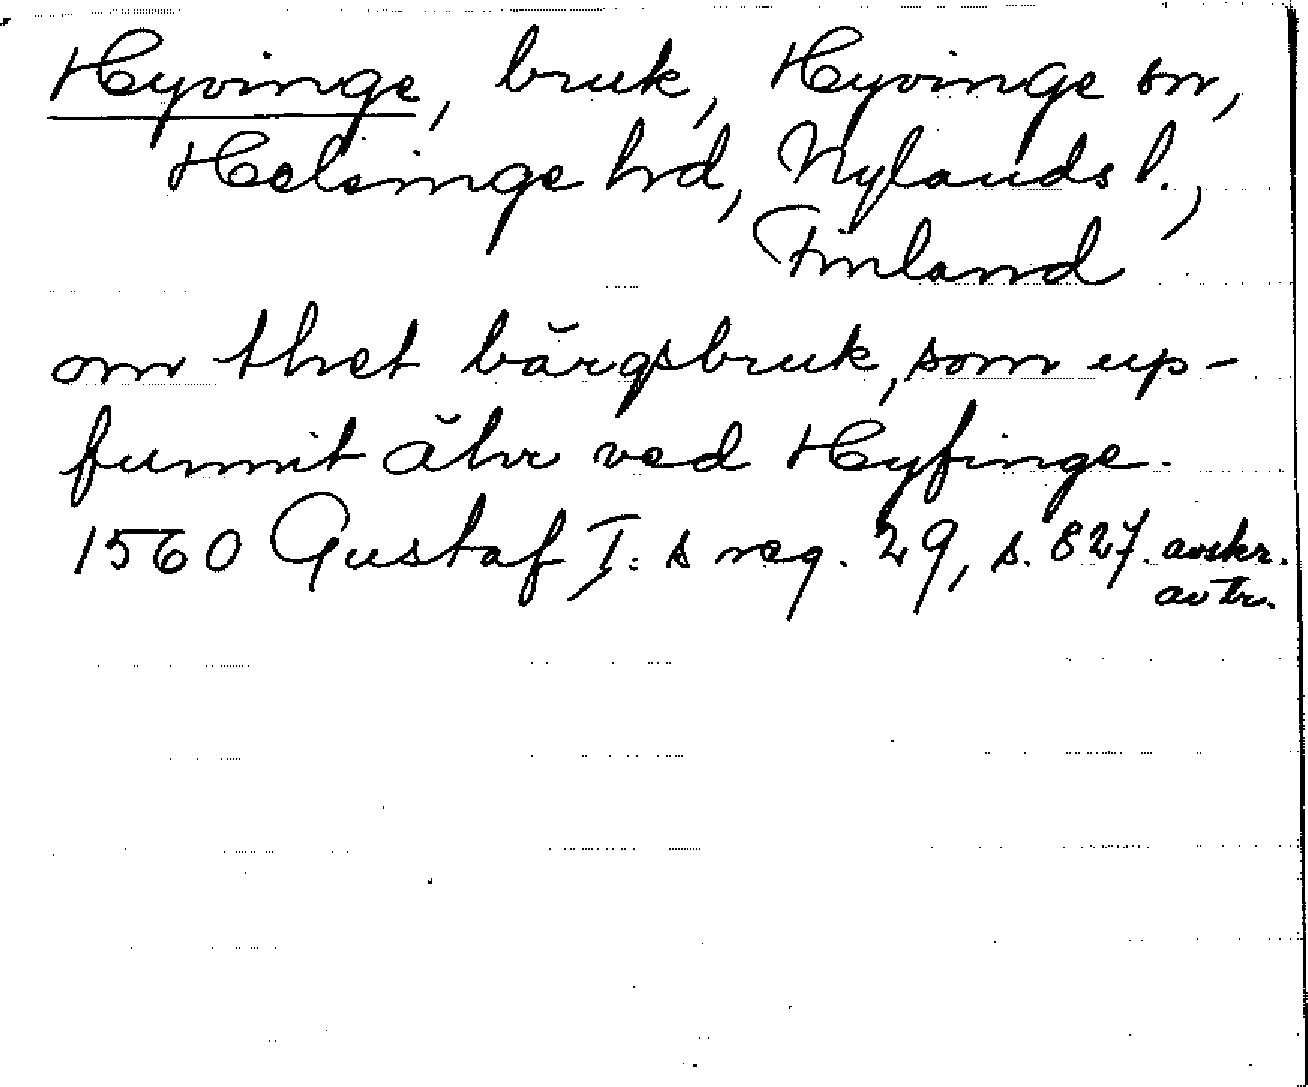 Hyvinge, bruk, Hyvinge sn,
Helsinge hrd, Nylands l.,
Finland
om thet bärgsbruk, som up-
funnit ähr ved Hyfinge.
1560 Gustaf I:s reg. 29, s. 827. avskr.
av tr.